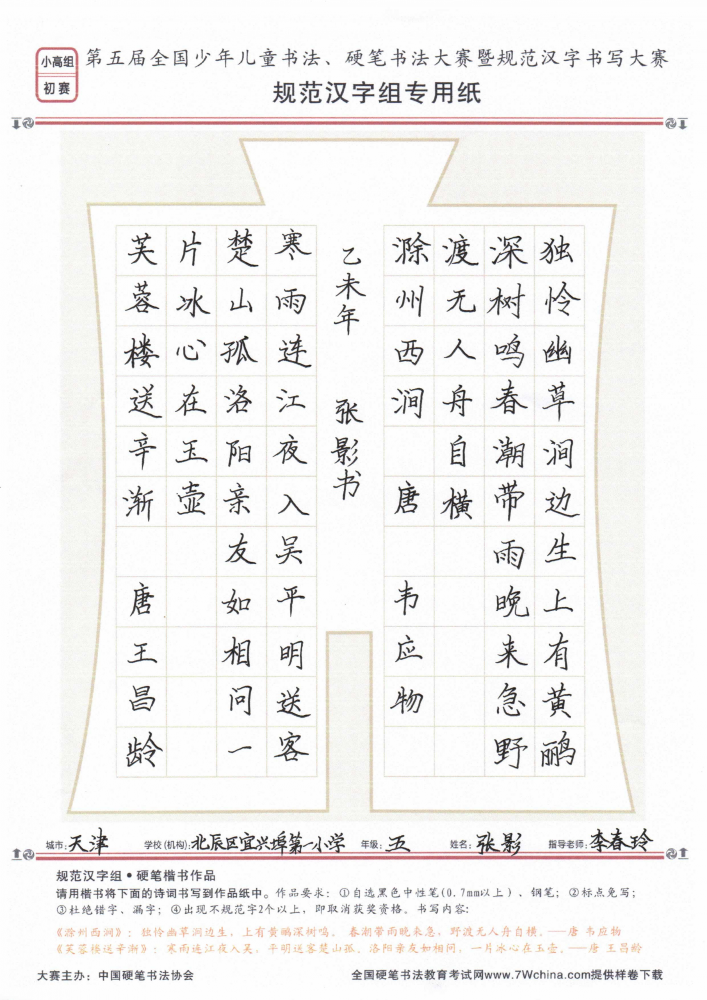 小高组
初赛
第五届全国少年儿童书法、硬笔书法大赛暨规范汉字书写大赛
规范汉字组专用纸
独怜幽草涧边生上有黄鹂
深树鸣春潮带雨晚来急野
渡无人舟自横
滁州西涧 唐 韦应物
乙未年 张影书
寒雨连江夜入吴平明送客
楚山孤洛阳亲友如相问一
片冰心在玉壶
芙蓉楼送辛渐 唐王昌龄
城市:天津 学校(机构):北辰区宜兴埠第一小学 年级:五 姓名:张影 指导老师:李春玲
规范汉字组•硬笔楷书作品
请用楷书将下面的诗词书写到作品纸中。作品要求:①自选黑色中性笔(0.7mm以上)、钢笔;②标点免写;
③杜绝错字、漏字;④出现不规范字2个以上,即取消获奖资格。书写内容:
《滁州西涧》:独怜幽草涧边生,上有黄鹂深树鸣。春潮带雨晚来急,野渡无人舟自横。——唐 韦应物
《芙蓉楼送辛渐》:寒雨连江夜入吴,平明送客楚山孤。洛阳亲友如相问,一片冰心在玉壶。——唐 王昌龄
大赛主办:中国硬笔书法协会 全国硬笔书法教育考试网www.7Wchina.com提供样卷下载